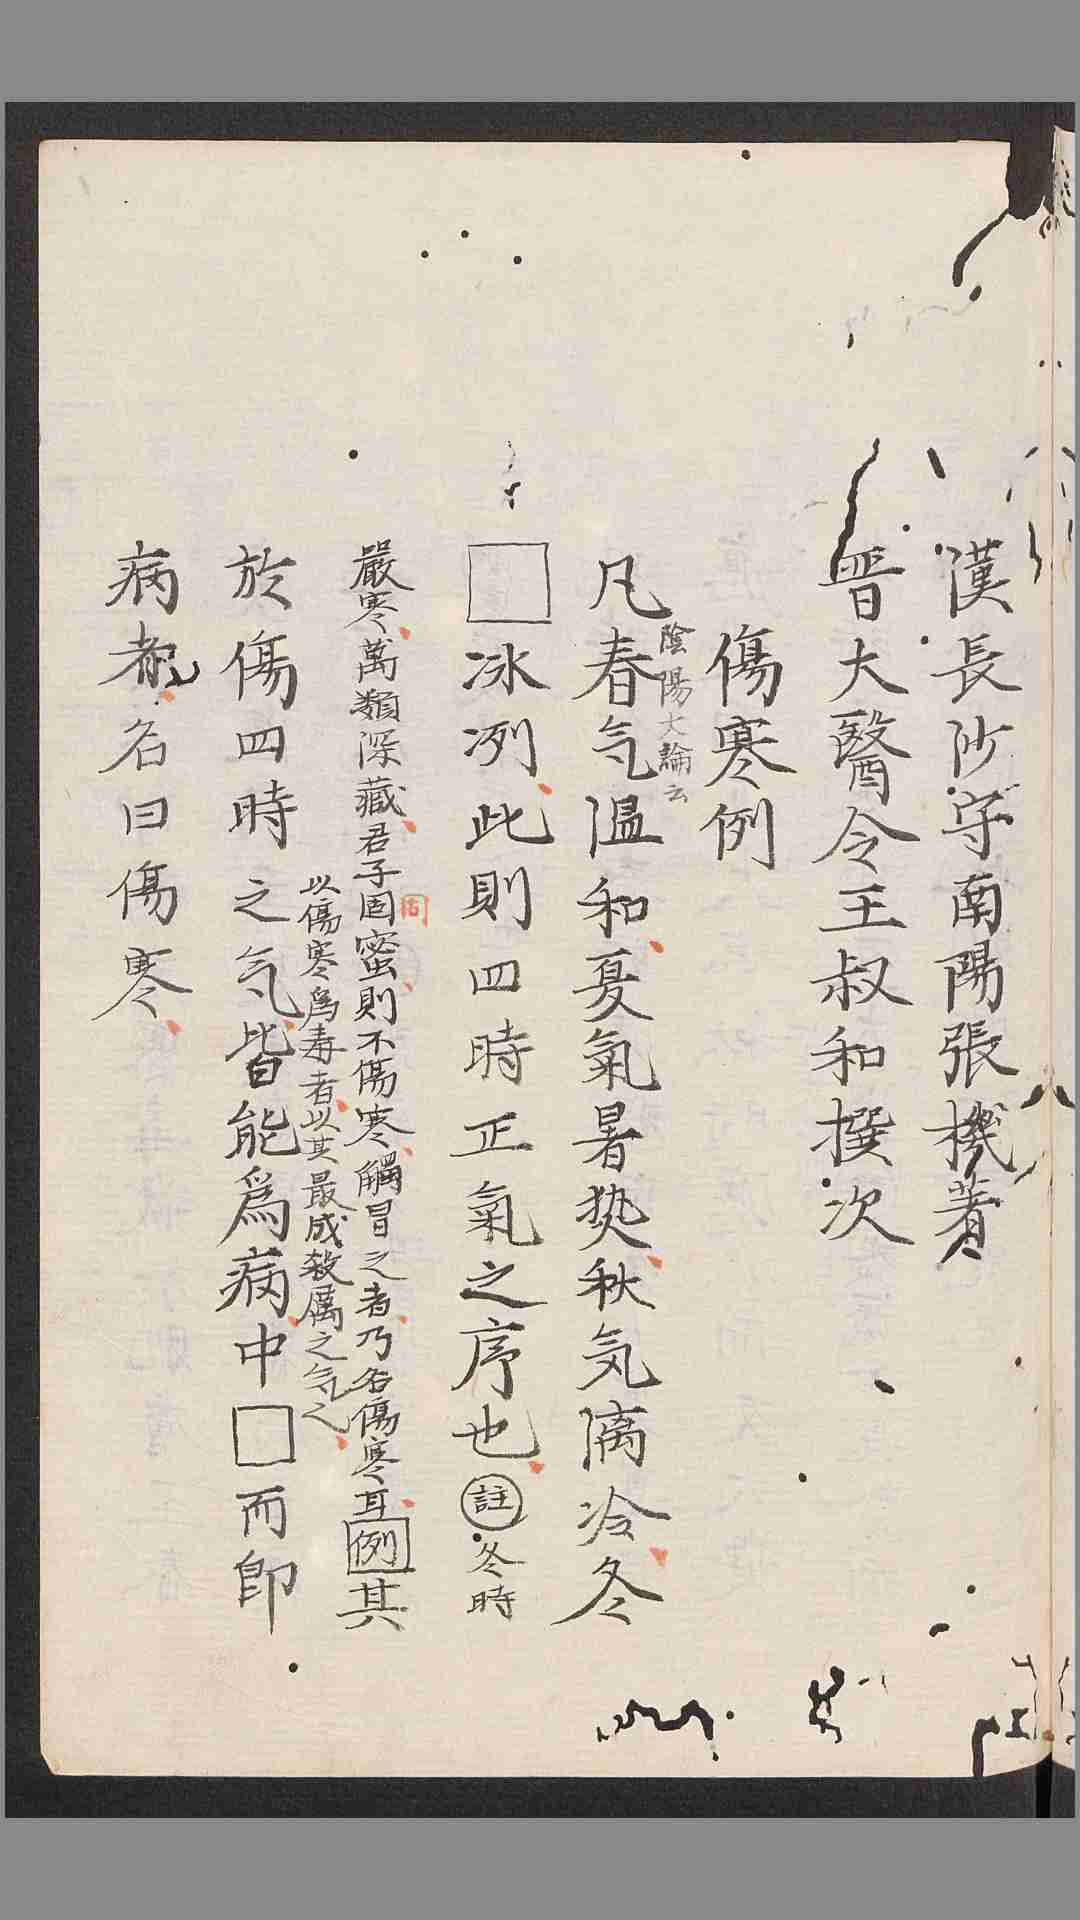 漢長沙守南陽張機著
晋大醫令王叔和撰次
傷寒例
陰陽大論云
凡春气温和夏氣暑热秋気漓冷冬
□冰冽此則四時正氣之序也註冬時
嚴寒萬類深藏君子固蜜則不傷寒觸冒之者乃名傷寒耳例其
以傷寒爲毒者以其最成殺厲之气也
於傷四時之气皆能爲病中□而即
病者名曰傷寒